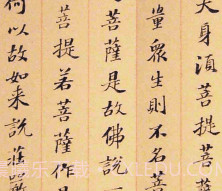 大身須菩提菩
量眾生則不名菩
菩薩是故佛說
菩提若菩薩作是
何以故如来說莊嚴